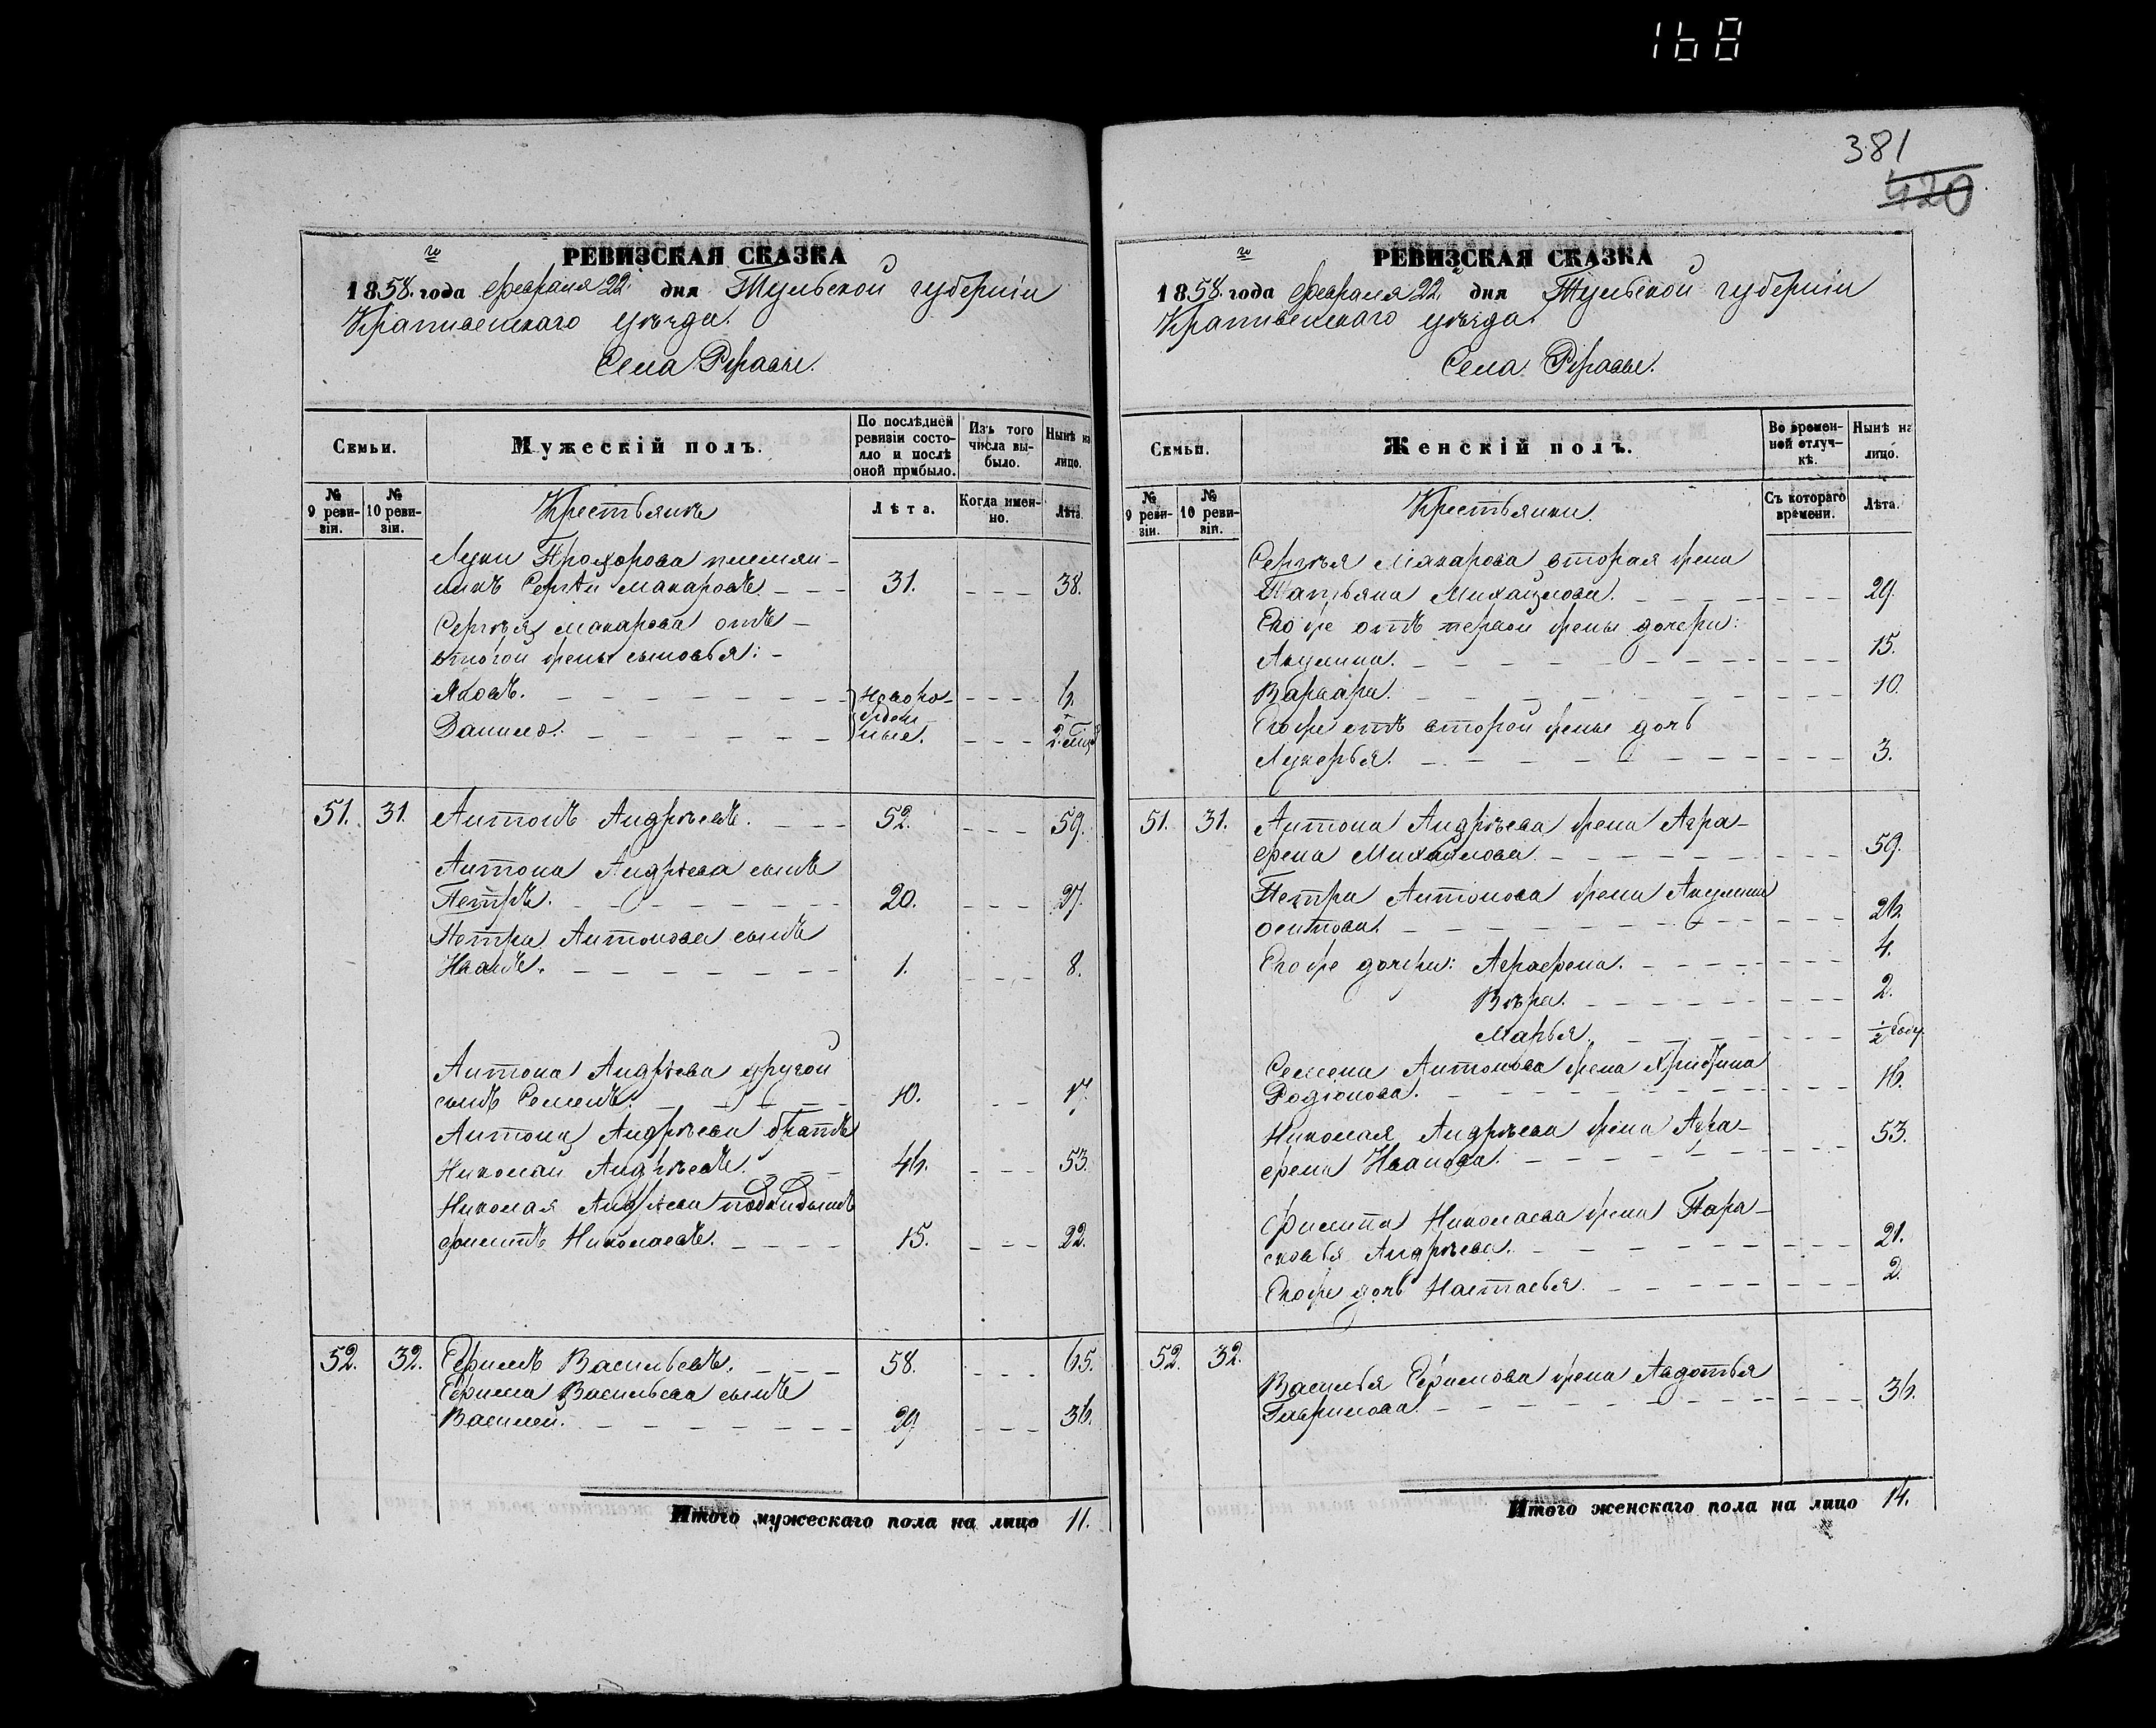 168
381
420
го
РЕВИЗСКАЯ СКАЗКА
1858. года февраля 22. дня Тульской губерніи
Крапивенскаго уѣзда.
Села
Семьи.
Мужескій полъ.
По послѣдней ревизіи состояло и послѣ оной прибыло.
Изъ того числа выбыло.
Нынѣ на лицо.
№ 9 ревизіи.
№ 10 ревизіи.
Крестьянъ
Лѣта.
Когда именно.
Лѣта.
Луки Прохорова племян-
никъ Сергѣй Макаровъ. 31. 38.
Сергѣя Макарова отъ
второй жены сыновья:
Яковъ. новорожденные. 6.
Данило. 2. мѣс
51. 31. Антонъ Андрѣевъ. 52. 59.
Антона Андрѣева сынъ
Петръ. 20. 27.
Петра Антонова сынъ
Иванъ. 1. 8.
Антона Андрѣева другой
сынъ Семенъ. 10. 17.
Антона Андрѣева братъ
Николай Андрѣевъ. 46. 53.
Николая Андрѣева подкидышъ
Филипъ Николаевъ. 15. 22.
52. 32. Ефимъ Васильевъ. 58. 65.
Ефима Васильева сынъ
Василей. 29 36.
Итого мужескаго пола на лицо 11.
го
РЕВИЗСКАЯ СКАЗКА
1858. года февраля 22. дня Тульской губерніи
Крапивенскаго уѣзда.
Села
Семьи.
Женскій полъ.
Во временной отлучкѣ.
Нынѣ на лицо.
№ 9 ревизіи.
№ 10 ревизіи.
Крестьянки.
Съ котораго времени.
Лѣта.
Сергѣя Макарова вторая жена
Татьяна Михайлова. 29.
Его же отъ первой жены дочери:
Акулина. 15.
Варвара. 10.
Его же отъ второй жены дочь
Лукерья. 3.
51. 31. Антона Андрѣева жена Агра-
фена Михайлова. 59.
Петра Антонова жена Акулина
Осипова. 26.
Его же дочери: Аграфена. 4.
Вѣра. 2.
Марья. ½ году.
Семена Антонова жена Христина
Родіонова. 16.
Николая Андрѣева жена Агра-
фена Иванова. 53.
Филипа Николаева жена Пара-
сковья Андрѣева. 21.
Его же дочь Настасья. 2.
52. 32. Василья Ефимова жена Авдотья
Гаврилова. 36.
Итого женскаго пола на лицо 14.